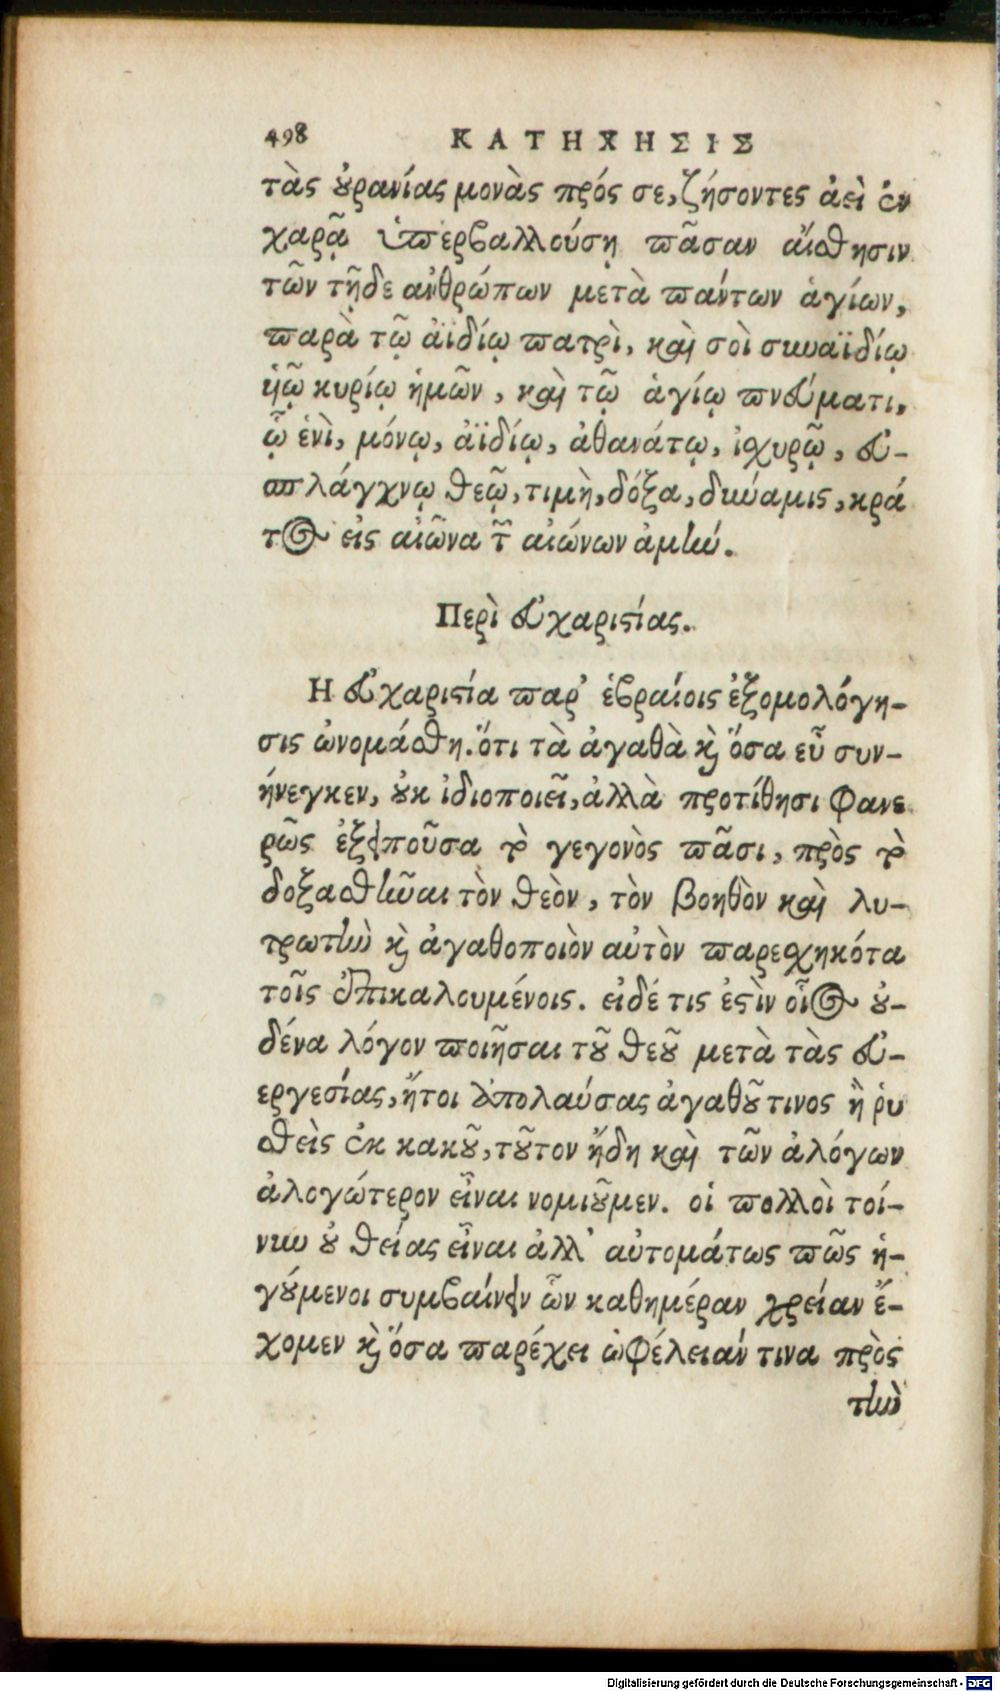 498 ΚΑΤΗΧΗΣΙΣ
τὰς ȣ̓ρανίας μονὰς πρός σε, ζήσοντες ἀεὶ ἐν
χαρᾷ ὑπερβαλλούσῃ πᾶσαν αἴσθησιν
τῶν τῇδε ἀνθρώπων μετὰ πάντων ἁγίων,
παρὰ τῷ ἀϊδίῳ πατρὶ, καὶ σοὶ συναϊδίῳ
ὑῷ κυρίῳ ἡμῶν, καὶ τῷ ἁγίῳ πνεύματι,
ᾧ ἑνὶ, μόνῳ, ἀϊδίῳ, ἀθανάτῳ, ἰχυρῷ, εὐ-
σπλάγχνῳ θεῷ, τιμὴ, δόξα, δύναμις, κρά
τος εἰς αἰῶνα τῶν αἰώνων ἀμήν.
Περὶ εὐχαριϛίας.
Η εὐχαριϛία παρ' ἑβραίοις ἐξομολόγη-
σις ὠνομάσθη. ὅτι τὰ ἀγαθὰ ϗ ὅσα εὖ συν-
ήνεγκεν, ȣ̓κ ἰδιοποιεῖ, ἀλλὰ προτίθησι φανε
ρῶς ἐξειποῦσα τὸ γεγονὸς πᾶσι, πρὸς τὸ
δοξασθῆναι τὸν θεὸν, τὸν βοηθὸν καὶ λυ-
τρωτὴν ϗ ἀγαθοποιὸν αὐτὸν παρεχηκότα
τοῖς ἐπικαλουμένοις. εἰδέ τις ἐϛὶν οἷος ȣ̓-
δένα λόγον ποιῆσαι τȣ͂ θεȣ͂ μετὰ τὰς εὐ-
εργεσίας, ἤτοι ἀπολαύσας ἀγαθȣ͂ τινος ἢ ῥυ
σθεὶς ἐκ κακȣ͂, τȣ͂τον ἤδη καὶ τῶν ἀλόγων
ἀλογώτερον εἶναι νομιȣ͂μεν. οἱ πολλοὶ τοί-
νυν ȣ̓ θείας εἶναι ἀλλ' αὐτομάτως πῶς ἡ-
γȣ́μενοι συμβαίνειν ὧν καθημέραν χρείαν ἔ-
χομεν ϗ ὅσα παρέχει ὠφέλειάν τινα πρὸς
τὴν
Digitalisierung gefördert durch die Deutsche Forschungsgemeinschaft - DFG